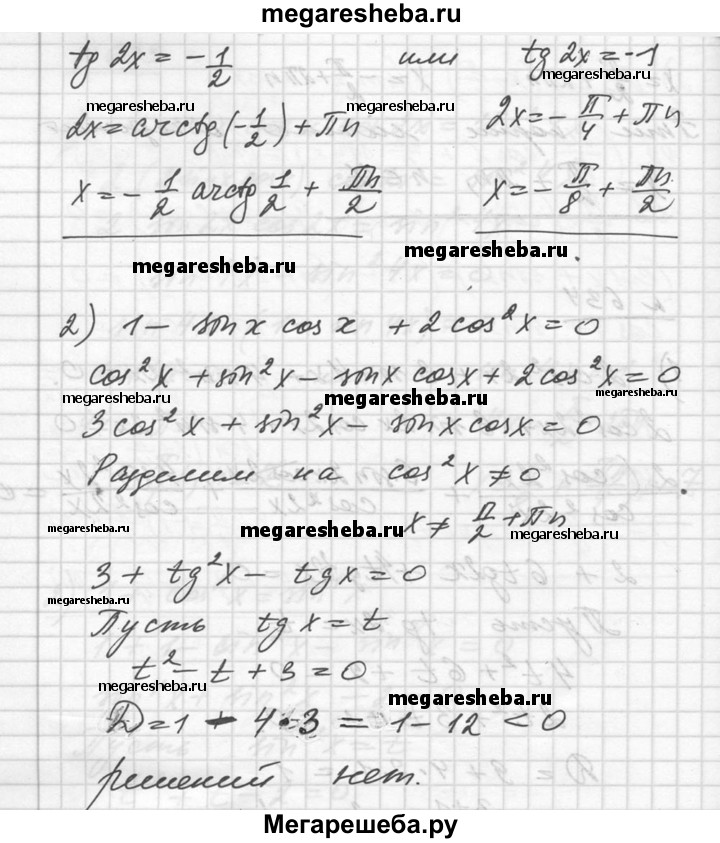 megaresheba.ru
tg 2x = -1/2 или tg 2x = -1
megaresheba.ru megaresheba.ru megaresheba.ru
2x = arctg(-1/2) + Пn 2x = -П/4 + Пn
megaresheba.ru megaresheba.ru megaresheba.ru
x = -1/2 arctg 1/2 + Пn/2 x = -П/8 + Пn/2
megaresheba.ru megaresheba.ru
2) 1 - sin x cos x + 2 cos²x = 0
cos²x + sin²x - sin x cos x + 2 cos²x = 0
megaresheba.ru megaresheba.ru megaresheba.ru
3 cos²x + sin²x - sin x cos x = 0
Разделим на cos²x ≠ 0
megaresheba.ru megaresheba.ru x ≠ П/2 + Пn megaresheba.ru
3 + tg²x - tg x = 0
megaresheba.ru
Пусть tg x = t
t² - t + 3 = 0
megaresheba.ru megaresheba.ru
D = 1 - 4·3 = 1 - 12 < 0
решений нет.
Мегарешеба.ру